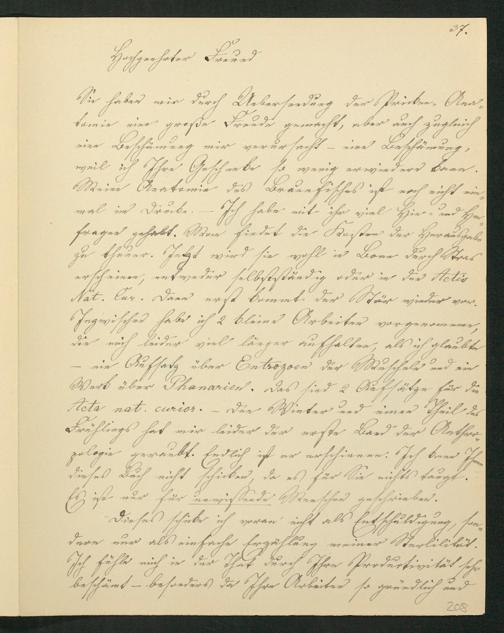 37.
Hochgeehrter Freund
Sie haben mir durch Uebersendung der Pricken-Ana-
tomie eine große Freude gemacht, aber auch zugleich
eine Beschämung mir verursacht – eine Beschämung,
weil ich Ihre Geschenke so wenig erwiedern kann.
Meine Anatomie des Braunfisches ist noch nicht ein-
mal im Drucke. – Ich habe mit ihr viel Hin- und Her-
fragen gehabt. Man findet die Kosten der Herausgabe
zu theuer. Jetzt wird sie wohl in Bonn durch
erscheinen, entweder selbstständig oder in den Actis
Nat. Cur. Dann erst kommt der Stör wieder vor.
Inzwischen habe ich 2 kleine Arbeiten vorgenommen,
die mich leider viel länger aufhalten, als ich glaubte
– ein Aufsatz über Entozoen der Muscheln und ein
Werk über Planarien. Das sind 2 Aufsätze für die
Acta nat. curios. – Den Winter und einen Theil des
Frühlings hat mir leider der erste Band der Anthro-
pologie geraubt. Endlich ist er erschienen. Ich kann Ihnen
dieses Buch nicht schicken, da es für Sie nichts taugt.
Es ist nur für unwissende Menschen geschrieben.
Dieses schicke ich voran nicht als Entschuldigung, son-
dern nur als einfache Erzählung meiner Sterilität.
Ich fühle mich in der That durch Ihre Productivität sehr
beschämt – besonders da Ihre Arbeiten so gründlich und
208